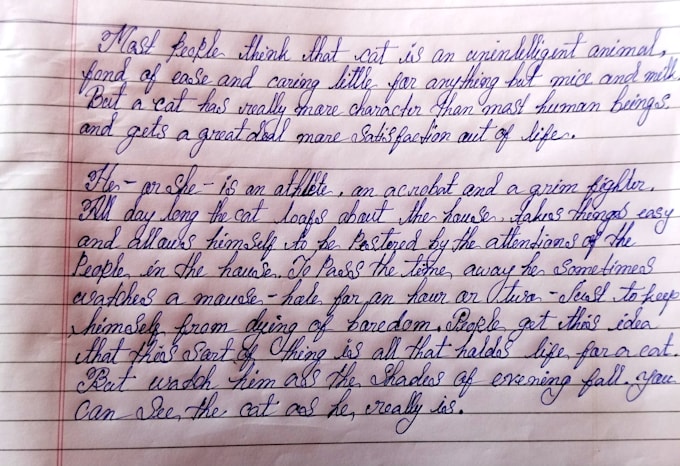 Most People think that cat is an unintelligent animal,
fond of ease and caring little for anything but mice and milk.
But a cat has really more character than most human beings
and gets a great deal more satisfaction out of life.
He - or she - is an athlete, an acrobat and a grim fighter.
All day long the cat loafs about the house, takes things easy
and allows himself to be Pestered by the attentions of the
People in the house. To Pass the time away he sometimes
watches a mouse-hole for an hour or two - Just to keep
himself from dying of boredom. People get this idea
that this sort of thing is all that holds life for a cat.
But watch him as the Shades of evening fall. you
can See the cat as he really is.